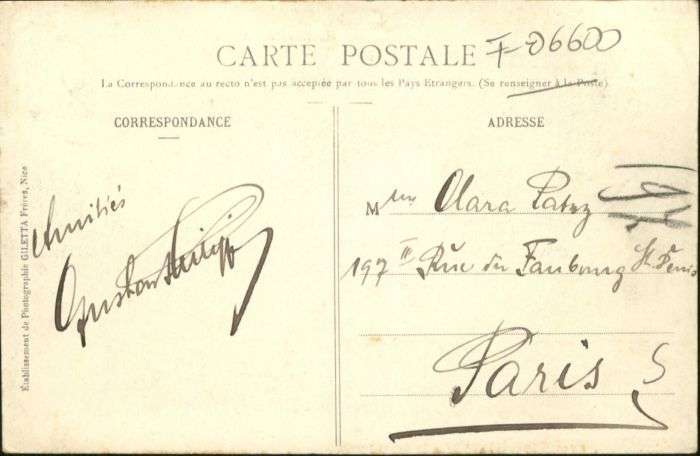 CARTE POSTALE
F-06600
La Correspondance au recto n'est pas acceptée par tous les Pays Etrangers. (Se renseigner à la Poste)
CORRESPONDANCE
ADRESSE
Amitiés
Gustav
Mme Clara
197 Rue du Faubourg St Denis
Paris
Etablissement de Photographie GILETTA Frères, Nice